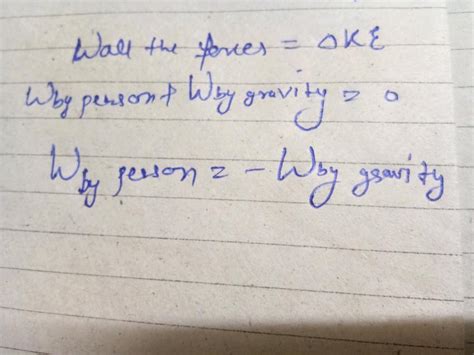 Wall the forces = ΔKE
Wby person + Wby gravity = 0
Wby person = - Wby gravity